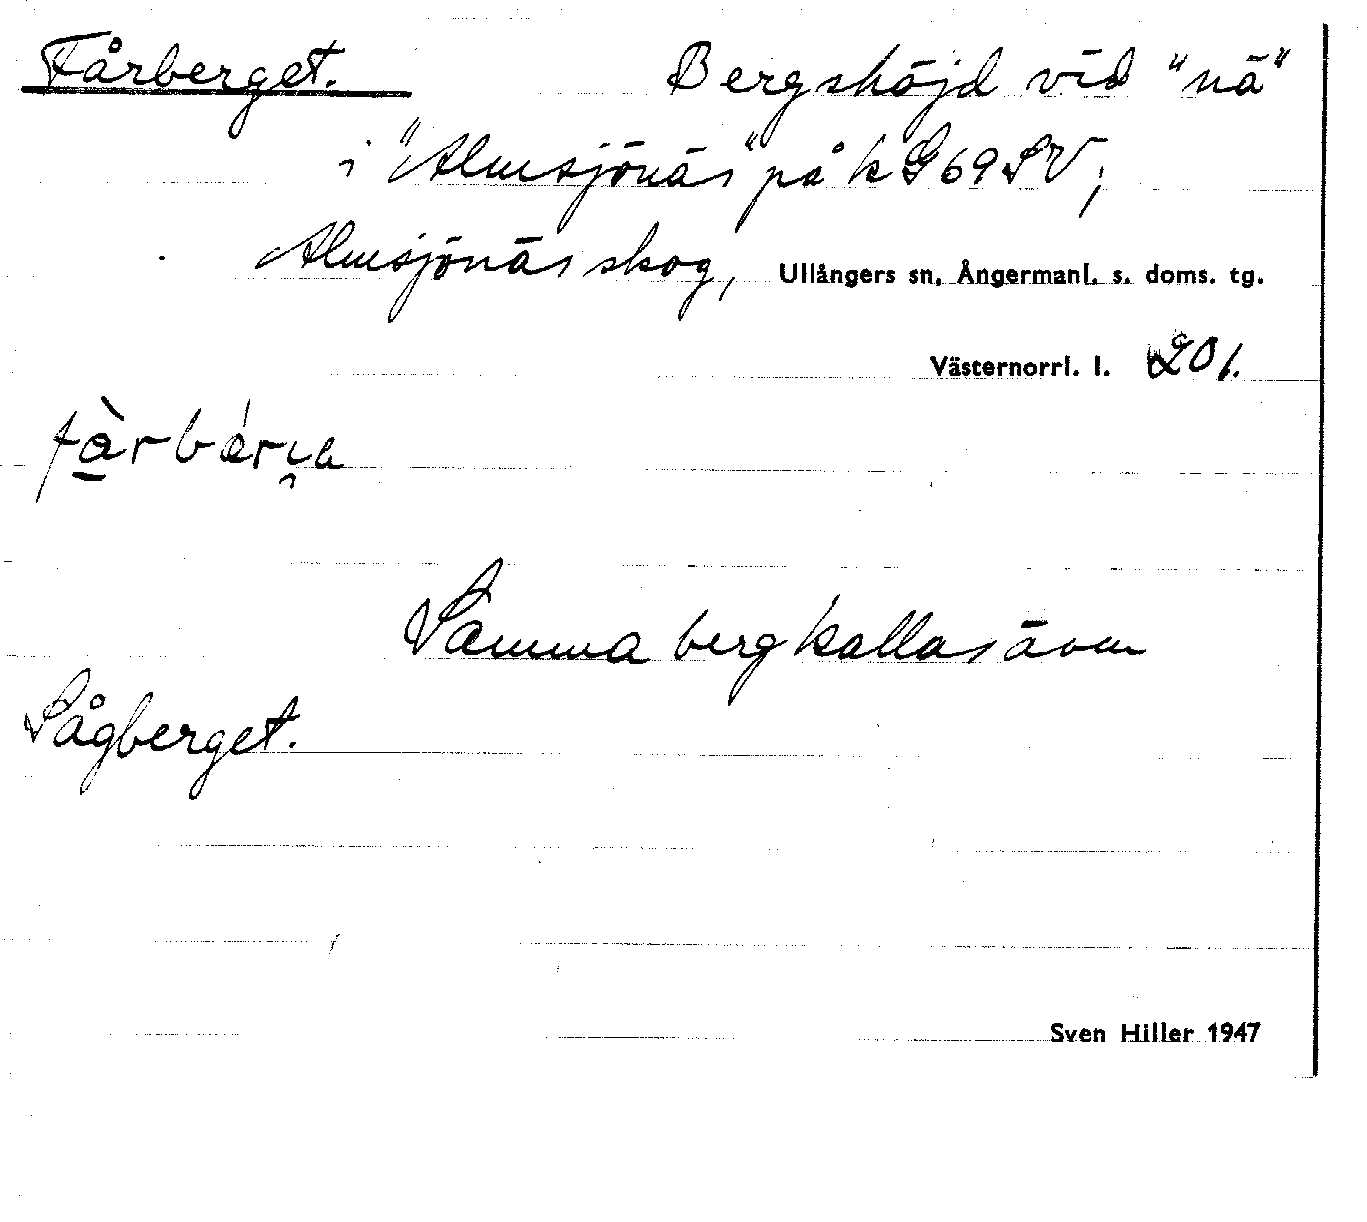 Fårberget. Bergshöjd vid "nä"
i "Almsjönäs" på k G69SV;
Almsjönäs skog, Ullångers sn, Ångermanl. s. doms. tg.
Västernorrl. l. 201.
Samma berg kallas även
Sågberget.
Sven Hiller 1947